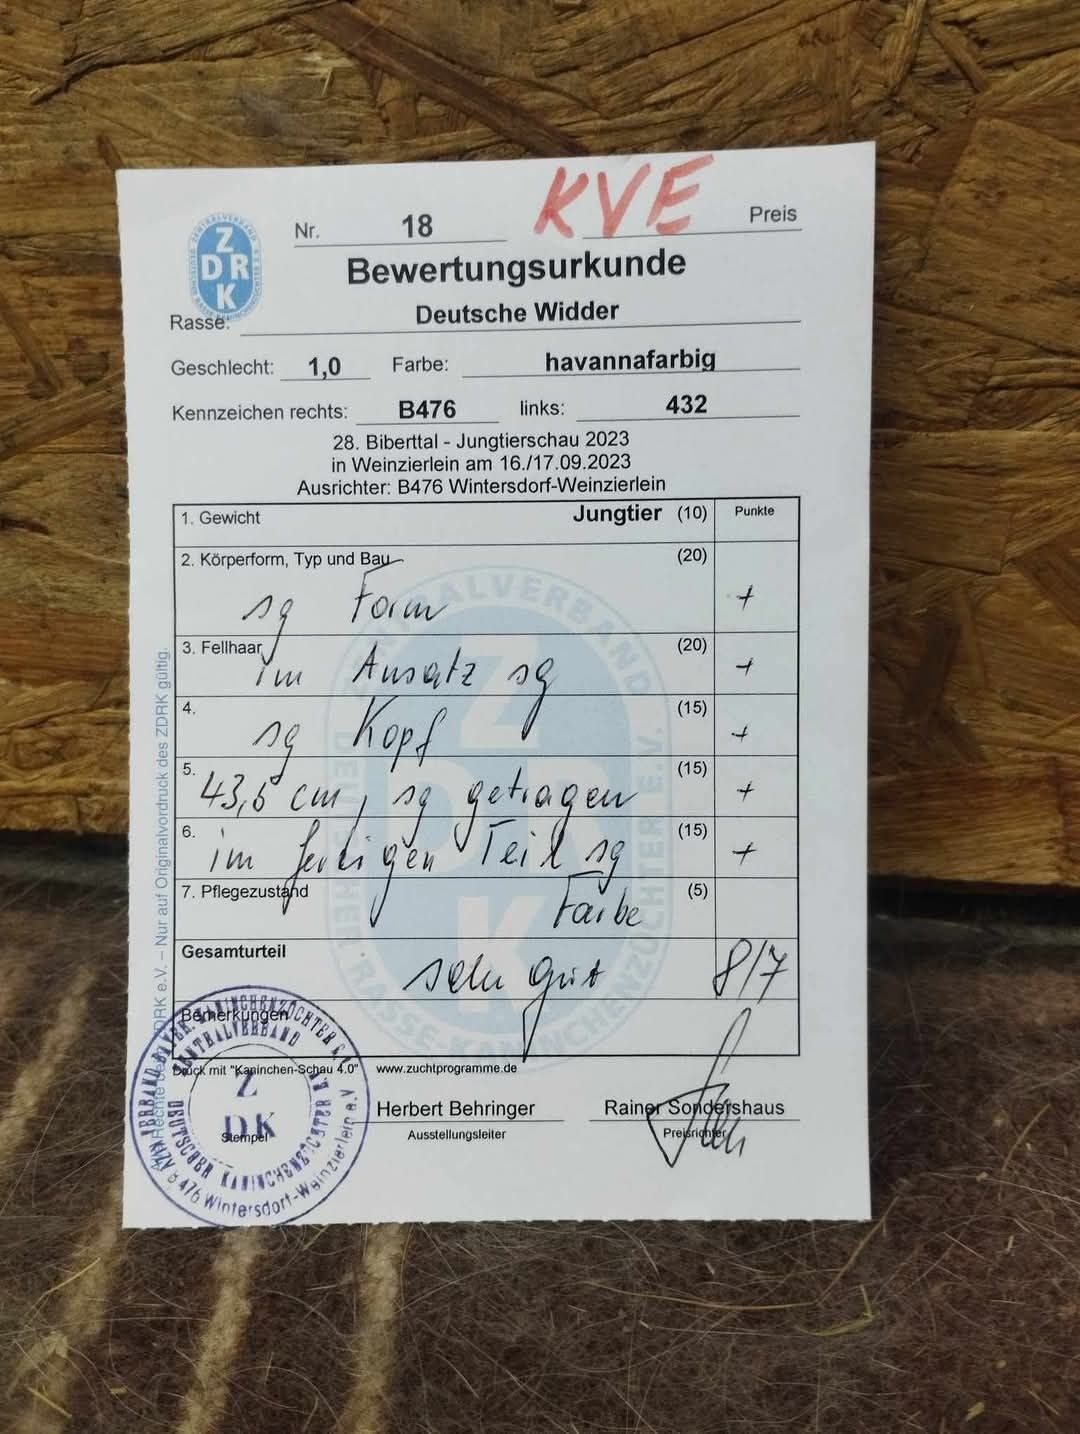 KVE
Nr. 18 Preis
ZDRK
Bewertungsurkunde
Rasse: Deutsche Widder
Geschlecht: 1,0 Farbe: havannafarbig
Kennzeichen rechts: B476 links: 432
28. Biberttal - Jungtierschau 2023
in Weinzierlein am 16./17.09.2023
Ausrichter: B476 Wintersdorf-Weinzierlein
1. Gewicht Jungtier (10) Punkte
2. Körperform, Typ und Bau (20)
sg Form +
3. Fellhaar (20)
im Ansatz sg +
4. (15)
sg Kopf +
5. (15)
43,5 cm, sg getragen +
6. (15)
im fertigen Teil sg +
7. Pflegezustand (5)
Farbe
Gesamturteil
sehr gut 8/7
Bemerkungen
Druck mit "Kaninchen-Schau 4.0" www.zuchtprogramme.de
Herbert Behringer Rainer Sondershaus
Stempel Ausstellungsleiter Preisrichter
ZENTRALVERBAND
DEUTSCHER KANINCHENZÜCHTER
ZDK
B 476 Wintersdorf-Weinzierlein e.V.
ZDRK e.V. – Nur auf Originalvordruck des ZDRK gültig.
ZENTRALVERBAND DEUTSCHER RASSE-KANINCHENZÜCHTER E.V.
ZDRK